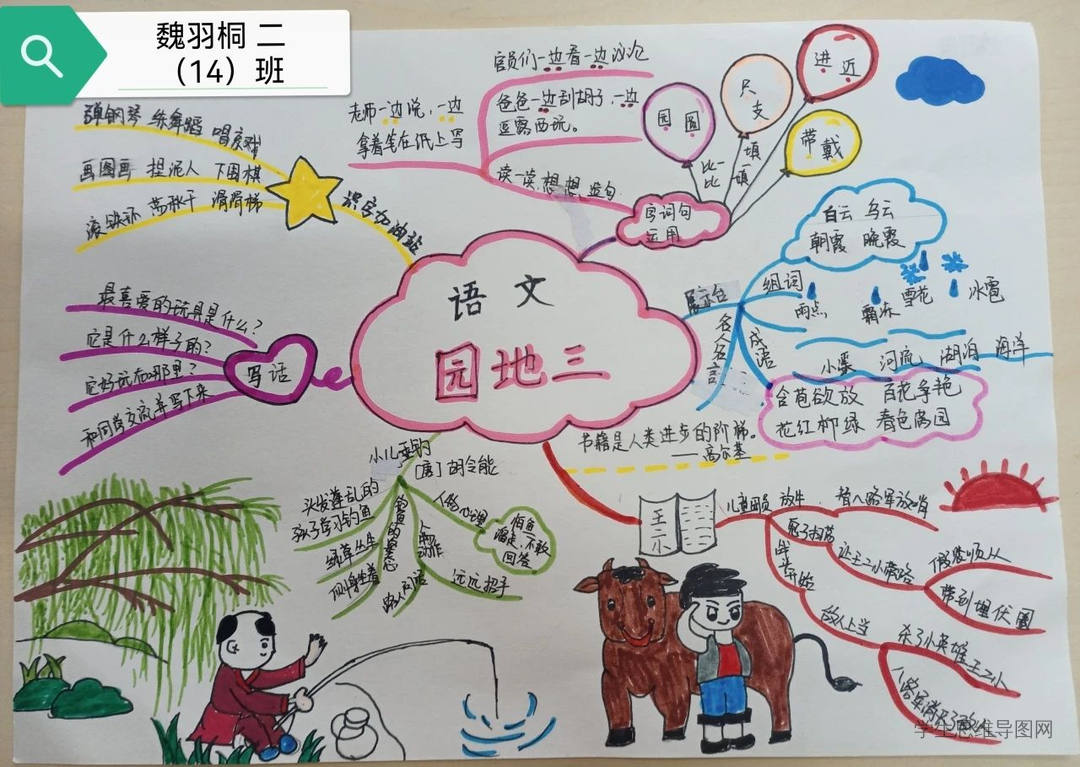 魏羽桐 二
（14）班
语 文
园地三
识字加油站
弹钢琴 练舞蹈 唱京戏
画图画 捏泥人 下围棋
滚铁环 荡秋千 滑滑梯
写话
最喜爱的玩具是什么？
它是什么样子的？
它好玩在哪里？
和同学交流并写下来
字词句
运用
官员们一边看一边议论
爸爸一边刮胡子，一边
逗露西玩。
老师一边说，一边
拿着笔在纸上写
读一读，想一想，造句
比一比
填一填
园 圆
尺 支
进 近
带 戴
展示台
组词
白云 乌云
朝霞 晚霞
雨点
霜冻
雪花
冰雹
小溪 河流 湖泊 海洋
成语
含苞欲放 百花争艳
花红柳绿 春色满园
名人名言
书籍是人类进步的阶梯。
——高尔基
小儿垂钓
[唐]胡令能
头发蓬乱的
孩子学习钓鱼
绿草丛生
侧身坐着
路人问话
远远招手
人物动作
人物心理
怕鱼
溜走，不敢
回答
王二小
儿童团员
放牛
替八路军放哨
敌人扫荡
让王二小带路
假装顺从
带到埋伏圈
战斗开始
敌人上当
杀了小英雄王二小
学生思维导图网